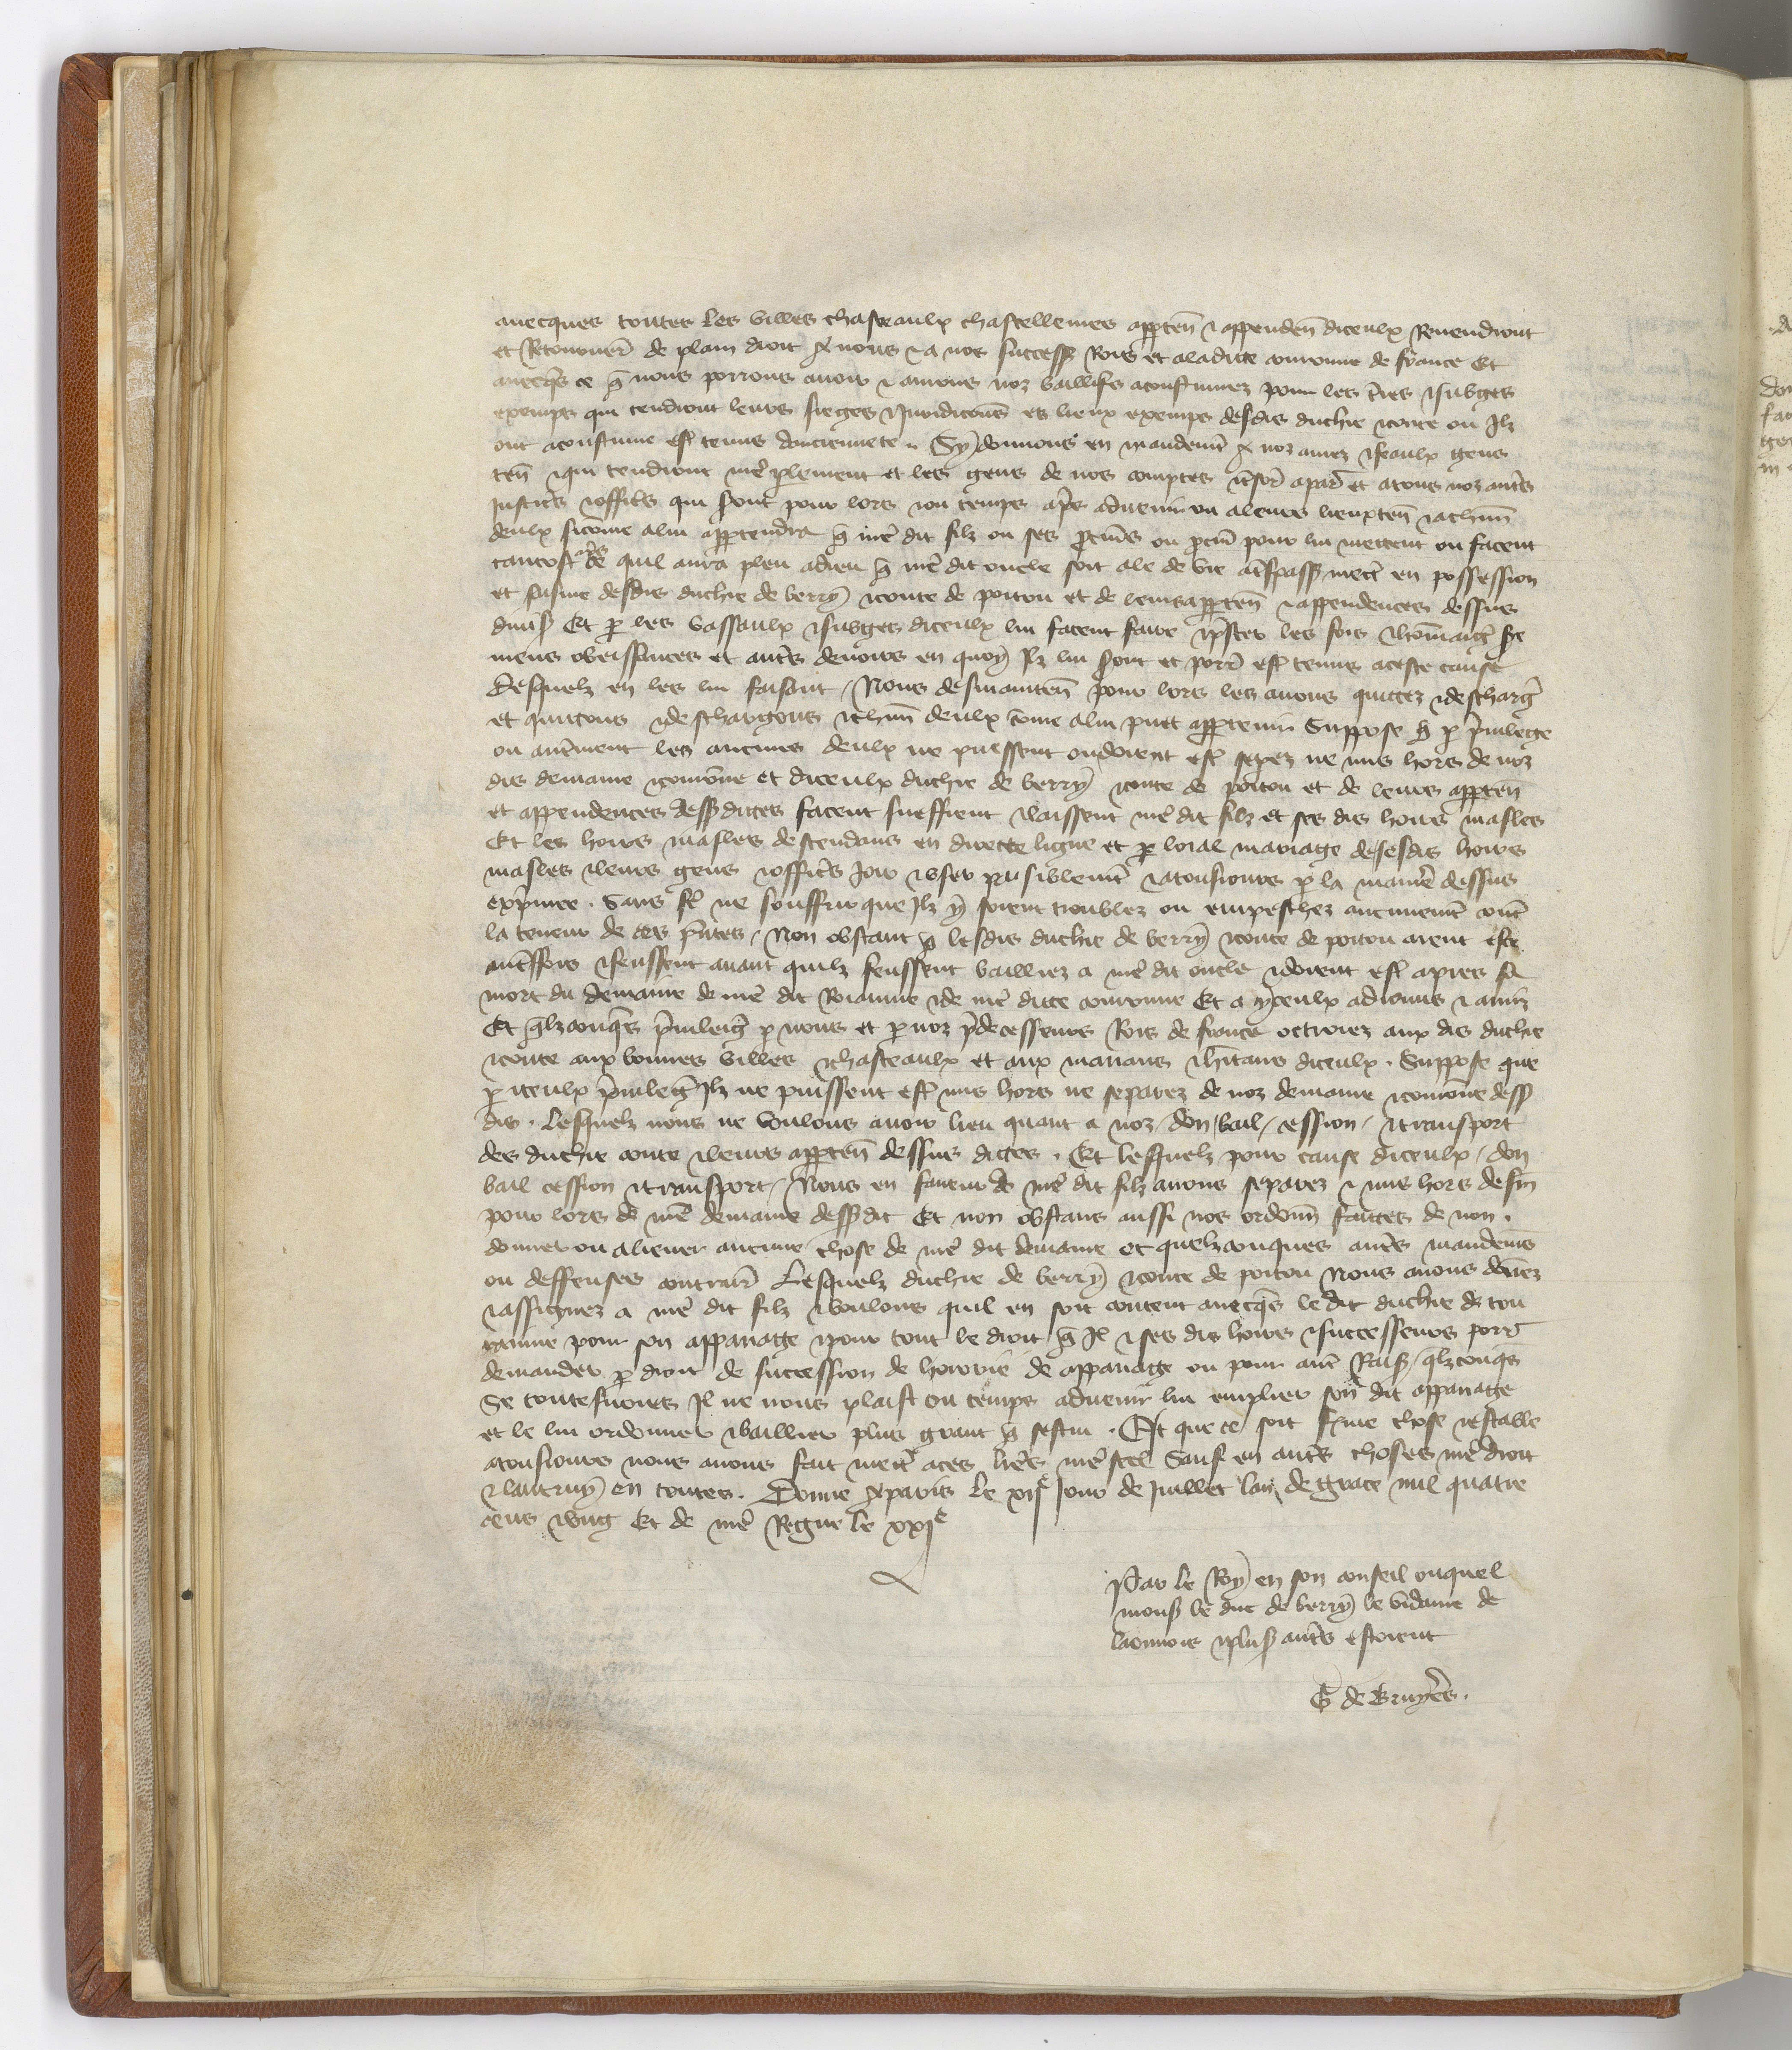 auecques toutes les villes chasteaulx chastellenies apparten̄ & appenden̄ diceulx Reuendront
et Retourner̄ de plain droit a nous & a nos success Rois et aladicte couronne de france Et
auecq̄s ce q̄ nous porrons auoir & aurons noz baillifs acoustumez pour les t̄res & subges
exemps qui tendront leurs sieges & Juridicions es lieux exemps desdis duchie & conte ou Ilz
ont acoustume est̄ tenus danciennete. Sy donnons en mandemt̄ a noz amez & feaulx gens
ten̄ & qui tendront nr̄e plement et les gens de nos comptes & t̄sor̄ a par̄ et a tous noz autr̄s
Justic̄s & offic̄s qui sont pour lors & ou temps apr̄s aduenir ou a leurs lieuxten̄ & a chūn
deulx sicōme a lui appartendra q̄ nr̄e dit filz ou ses procur̄s ou procur̄ pour lui mettent ou facent
tantost apr̄s ce quil aura pleu a dieu q̄ nr̄e dit oncle soit ale de vie a t̄spass mectr̄ en possession
et saisine desdis duchie de berry & conte de poitou et de leurs apparten̄ & appendences dessus
diuis Et p les vassaulx & subges diceulx lui facent faire & p̄ster les fois & hōmaiḡ se
mens obeissances et autr̄s deuoirs en quoy Ilz lui sont et porr̄ est̄ tenus a ceste cause
Lesquelz en les lui faisant / Nous desmainten̄ pour lors les auons quittez & descharḡ
et quittons & deschargons & chūn deulx cōme a lui puet appartenir Suppose q̄ p p̄uilege
ou autr̄ment les aucuns deulx ne puessent ou doient est̄ sepez ne mis hors de noz
dis demaine & courōne et diceulx duchie de berry & conte de poitou et de leurs apparten̄
et appendences dess dictes facent sueffrent & laissent nr̄e dit filz et ses dis hoirs masles
Et les hoirs masles descendans en directe ligne et p loial mariage de sesdis hoirs
masles & leurs gens & offic̄s Joir & vser paisiblemt̄ & a tousiours p la manier̄e dessus
exp̄mee. Sans fe ne souffrir que Ilz y soient troublez ou empeschez aucunemt̄ contr̄
la teneur de ces p̄ntes / Non obstant q̄ lesdis duchie de berry & conte de poitou aient este
autr̄ffois & feussent auant quilz feussent bailliez a nr̄e dit oncle & doient est̄ apres sa
mort du demaine de nr̄e dit Roiaume & de nr̄e dicte couronne Et a yceulx adioins & amis
Et q̄lzconq̄s p̄uileiḡ p nous et p noz p̄decesseurs Rois de france octroiez aux dis duchie
& conte aux bonnes villes & chasteaulx et aux manans & h̄itans diceulx. Suppose que
p iceulx p̄uileḡ Ilz ne puissent est̄ mis hors ne separez de noz demaine & courōne dess
dis. Lesquelz nous ne voulons auoir lieu quant a noz / don / bail / cession / & transport
des duchie conte & leurs apparten̄ dessus dictes. Et lesquelz pour cause diceulx / don
bail cession & transport / Nous en faueur de nr̄e dit filz auons separez & mis hors des m̄
pour lors de nr̄e demaine dess dit Et non obstans aussi nos ordonn̄ faictes de non
donner ou aliener aucune chose de nr̄e dit demaine et quelzconques autr̄s mandemēs
ou deffenses contrair̄ Lesquelz duchie de berry & conte de poitou Nous auons dōnez
& assignez a nr̄e dit filz & voulons quil en soit content auecq̄s le dit duchie de tou
raine pour son appanage & pour tout le droit q̄ Il & ses dis hoirs & successeurs porr̄
demander p droit de succession de hoirrie de appanage ou pour autr̄ Rais q̄lzconq̄s
Se toutesuoies Il ne nous plaist ou temps aduenir lui emplier son dit appanage
et le lui ordonner & baillier plus grant q̄ sestui. Et que ce soit ferme chose & estable
a tousiours nous auons fait mettr̄ a ces l̄res nr̄e seel Sauf en autr̄s choses nr̄e droit
& lautruy en toutes. Donne a paris le xij̄e Jour de Juillet lan de grace mil quatre
cens & vng Et de nr̄e Regne le xxje
Par le Roy en son conseil ouquel
mons le duc de berry le vidame de
laonnois & plus autr̄s estoient
G de Bruyer̄s.